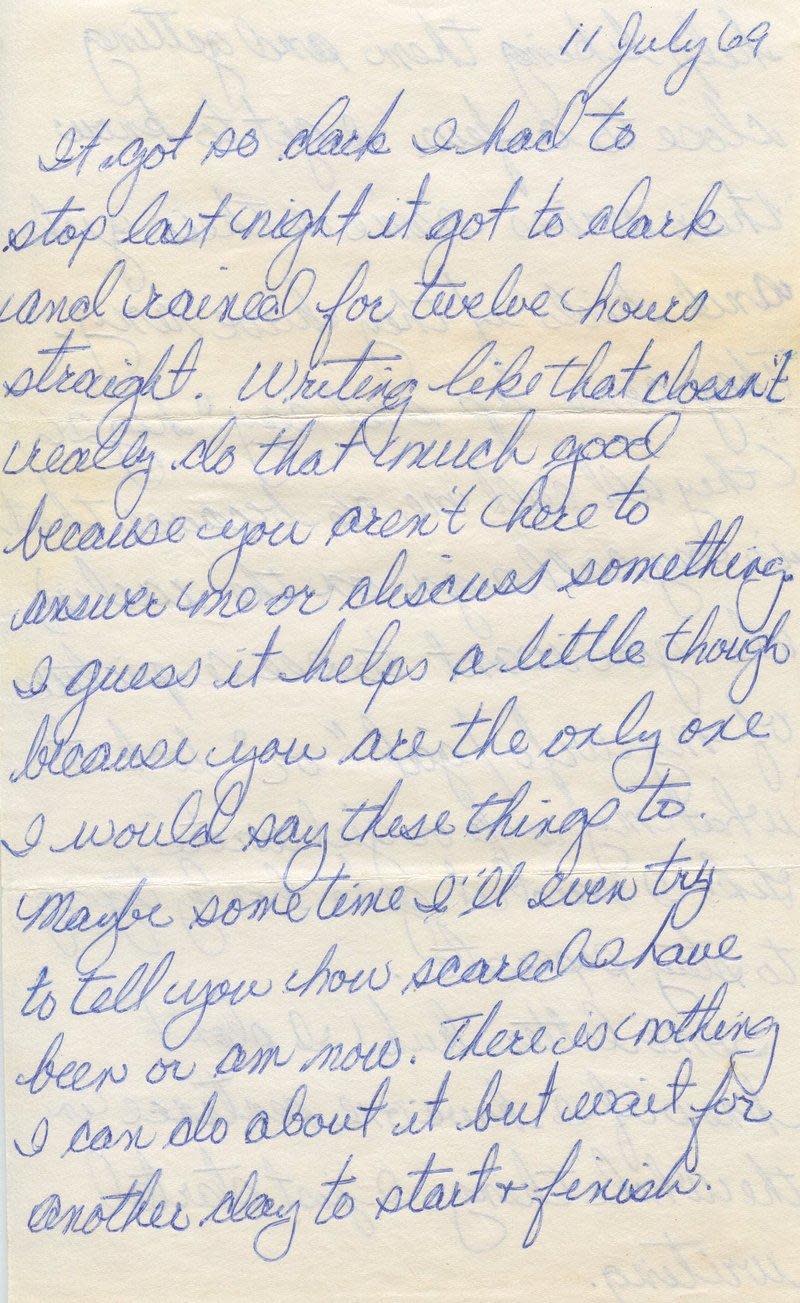 11 July 69
It got so dark I had to
stop last night it got to dark
and rained for twelve hours
straight. Writing like that doesn't
really do that much good
because you aren't here to
answer me or discuss something.
I guess it helps a little though
because you are the only one
I would say these things to.
Maybe sometime I'll even try
to tell you how scared I have
been or am now. There is nothing
I can do about it but wait for
another day to start + finish.